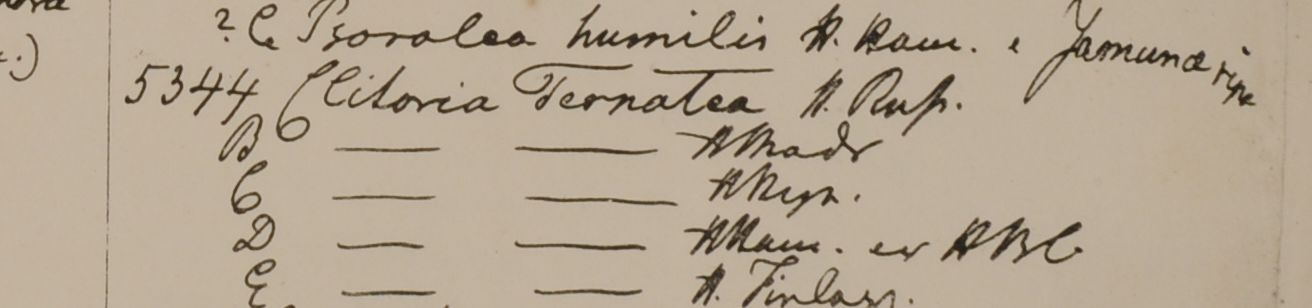 ? C Psoralea humilis H. Ham. e Jamunae ripa
5344 Clitoria Ternatea H. Russ.
B — — H Madr
C — — H Heyn.
D — — H Ham. ex HBC
E — — H. Finlays.